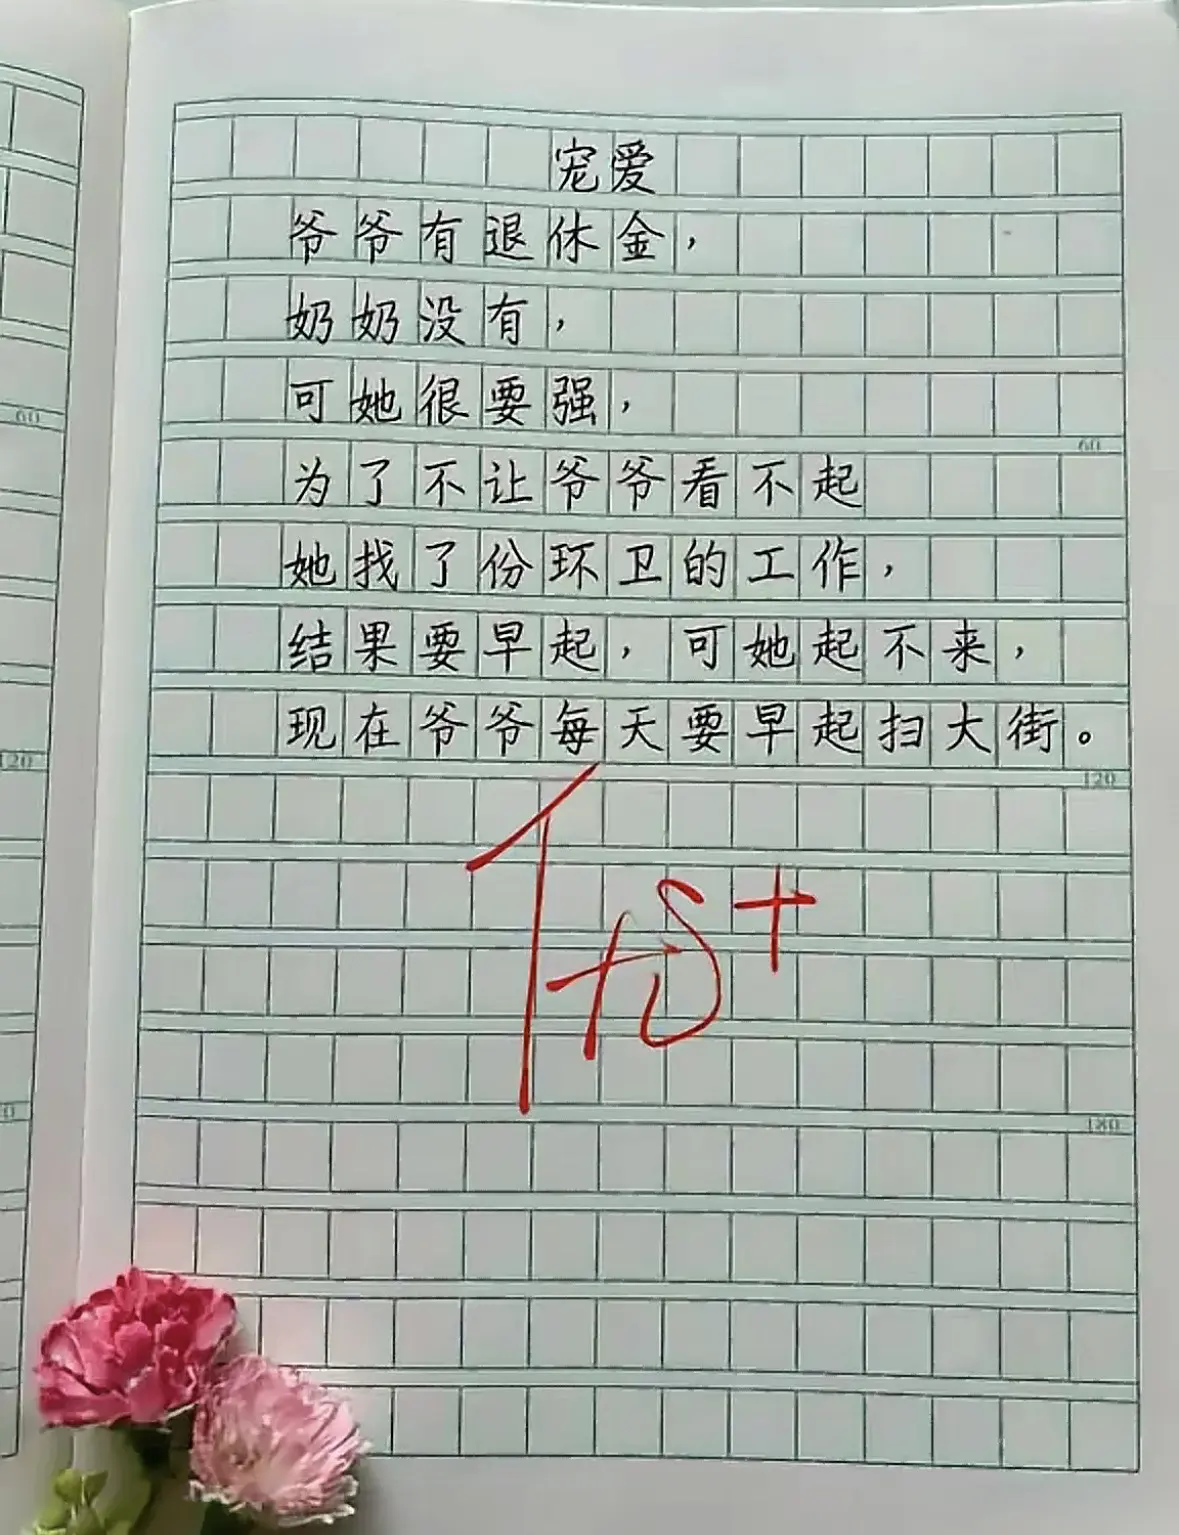 宠爱
爷爷有退休金，
奶奶没有，
可她很要强，
60
60
为了不让爷爷看不起
她找了份环卫的工作，
结果要早起，可她起不来，
现在爷爷每天要早起扫大街。
120
120
180